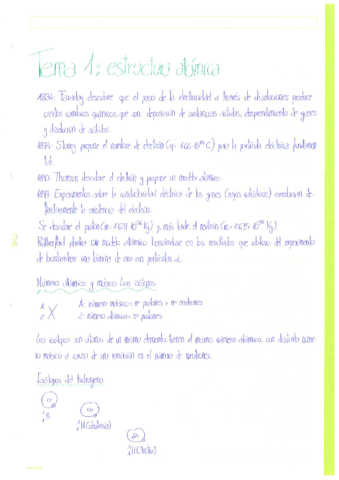 Tema 1: estructura atómica
1834: Faraday descubre que el paso de la electricidad a través de disoluciones produce
ciertos cambios químicos, que son: deposición de sustancias sólidas, desprendimiento de gases
y disolución de sólidos.
1874: Stoney propone el nombre de electrón para la partícula eléctrica fundamen
tal.
Thomson descubre el electrón y propone un modelo atómico.
Experimentos sobre la conductividad eléctrica de los gases (rayos catódicos) corroboran de-
finitivamente la existencia del electrón.
Se descubre el protón y, más tarde, el neutrón
Rutherford plantea un modelo atómico basándose en los resultados que obtuvo del experimento
de bombardear una lámina de oro con partículas α.
Número atómico y másico. Los isótopos
A X A: número másico = nº protones + nº neutrones
Z Z: número atómico = nº protones
Los isótopos son átomos de un mismo elemento. Tienen el mismo número atómico, con distinto núme-
ro másico a causa de una variación en el número de neutrones.
Isótopos del hidrógeno
H
H (deuterio)
H (tritio)